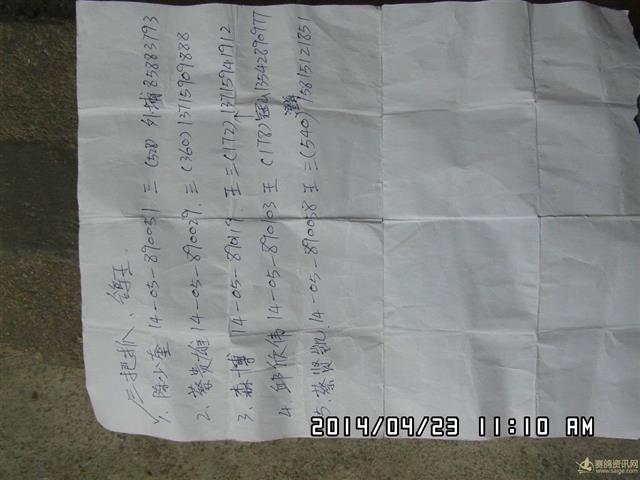 三把抓、鸽王.
1、陈少奎 14-05-890051 三 (528) 外辅 85883793
2、蔡贵雄 14-05-890029. 三 (360) 13715909888
3、森博 14-05-89019 王 三 (172) 13715941912
4、邱欣伟 14-05-890103 王 (178) 13542890977
5、蔡贤凯. 14-05-890058 王 三 (540) 15815121851
2014/04/23 11:10 AM
赛鸽资讯网
www.saige.com